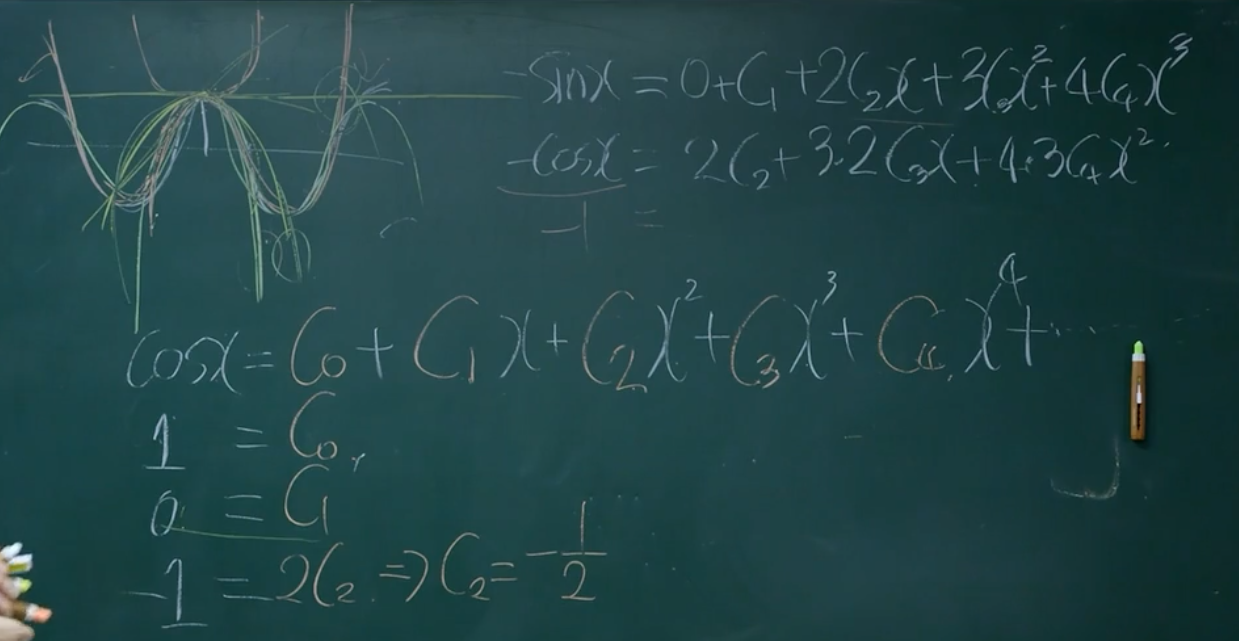 -sinx = 0+C₁+2C₂x+3C₃x²+4C₄x³
-cosx = 2C₂+3·2C₃x+4·3C₄x²·
-1 =
cosx = C₀+C₁x+C₂x²+C₃x³+C₄x⁴+·····
1 = C₀,
0 = C₁
-1 = 2C₂ ⇒ C₂ = -1/2